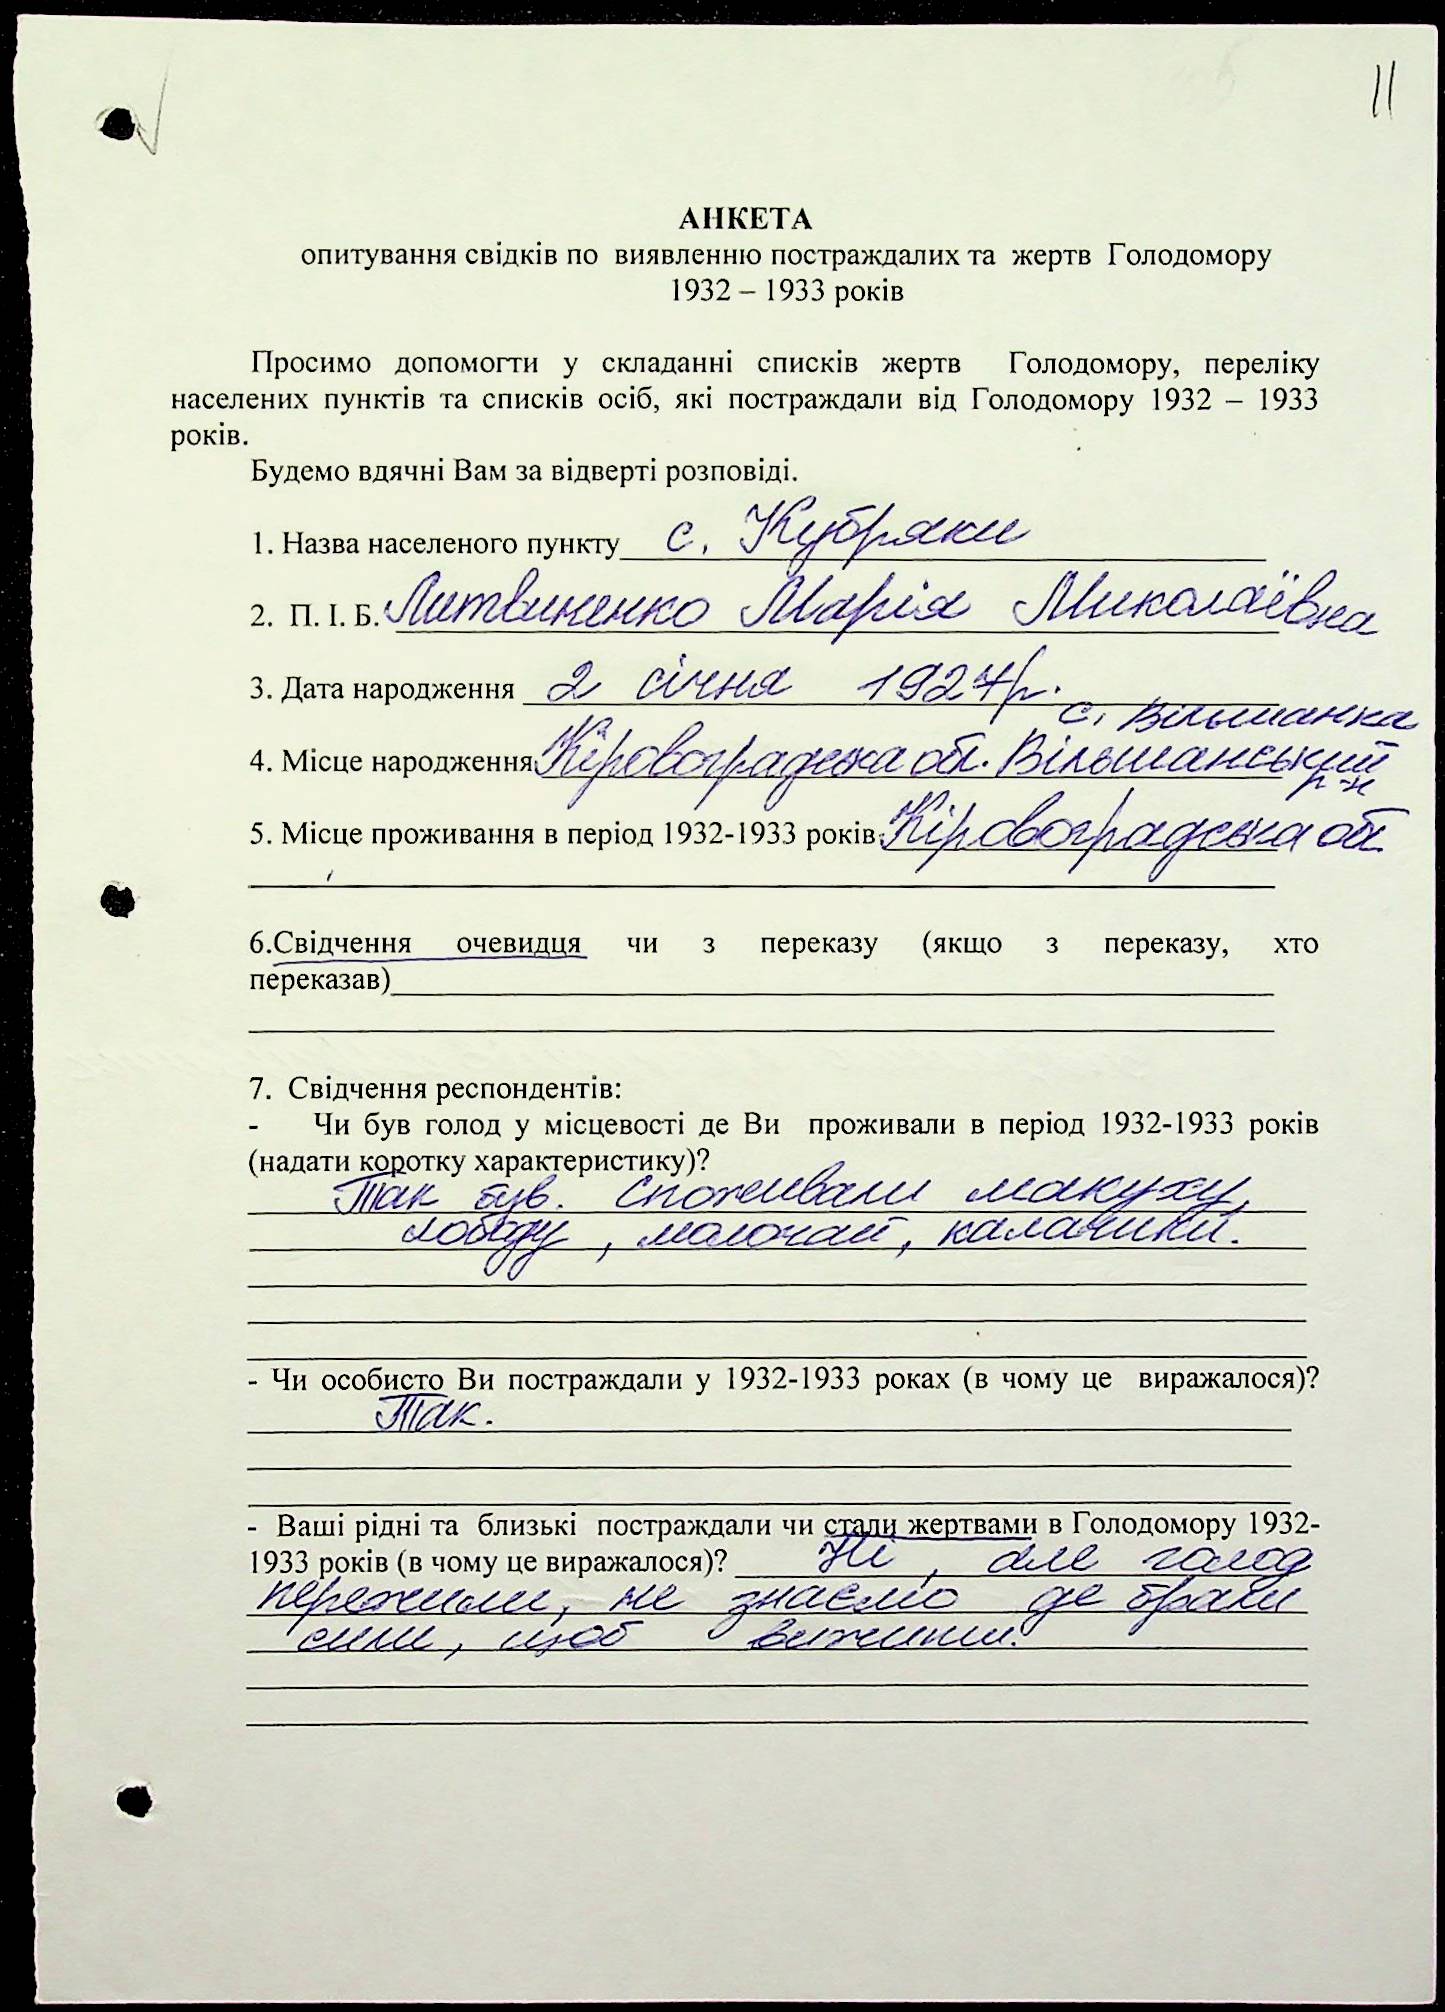 11
АНКЕТА
опитування свідків по виявленню постраждалих та жертв Голодомору
1932 – 1933 років
Просимо допомогти у складанні списків жертв Голодомору, переліку
населених пунктів та списків осіб, які постраждали від Голодомору 1932 – 1933
років.
Будемо вдячні Вам за відверті розповіді.
1. Назва населеного пункту с. Кубряки
2. П. І. Б. Литвиненко Марія Миколаївна
3. Дата народження 2 січня 1927р.
с. Вільшанка
4. Місце народження Кіровоградська обл. Вільшанський
р-н
5. Місце проживання в період 1932-1933 років: Кіровоградська обл.
6.Свідчення очевидця чи з переказу (якщо з переказу, хто
переказав)
7. Свідчення респондентів:
- Чи був голод у місцевості де Ви проживали в період 1932-1933 років
(надати коротку характеристику)?
Так був. Споживали макуху,
лободу, молочай, калачики.
- Чи особисто Ви постраждали у 1932-1933 роках (в чому це виражалося)?
Так.
- Ваші рідні та близькі постраждали чи стали жертвами в Голодомору 1932-
1933 років (в чому це виражалося)? Ні, але голод
пережили, не знаємо де брали
сили, щоб вижити.